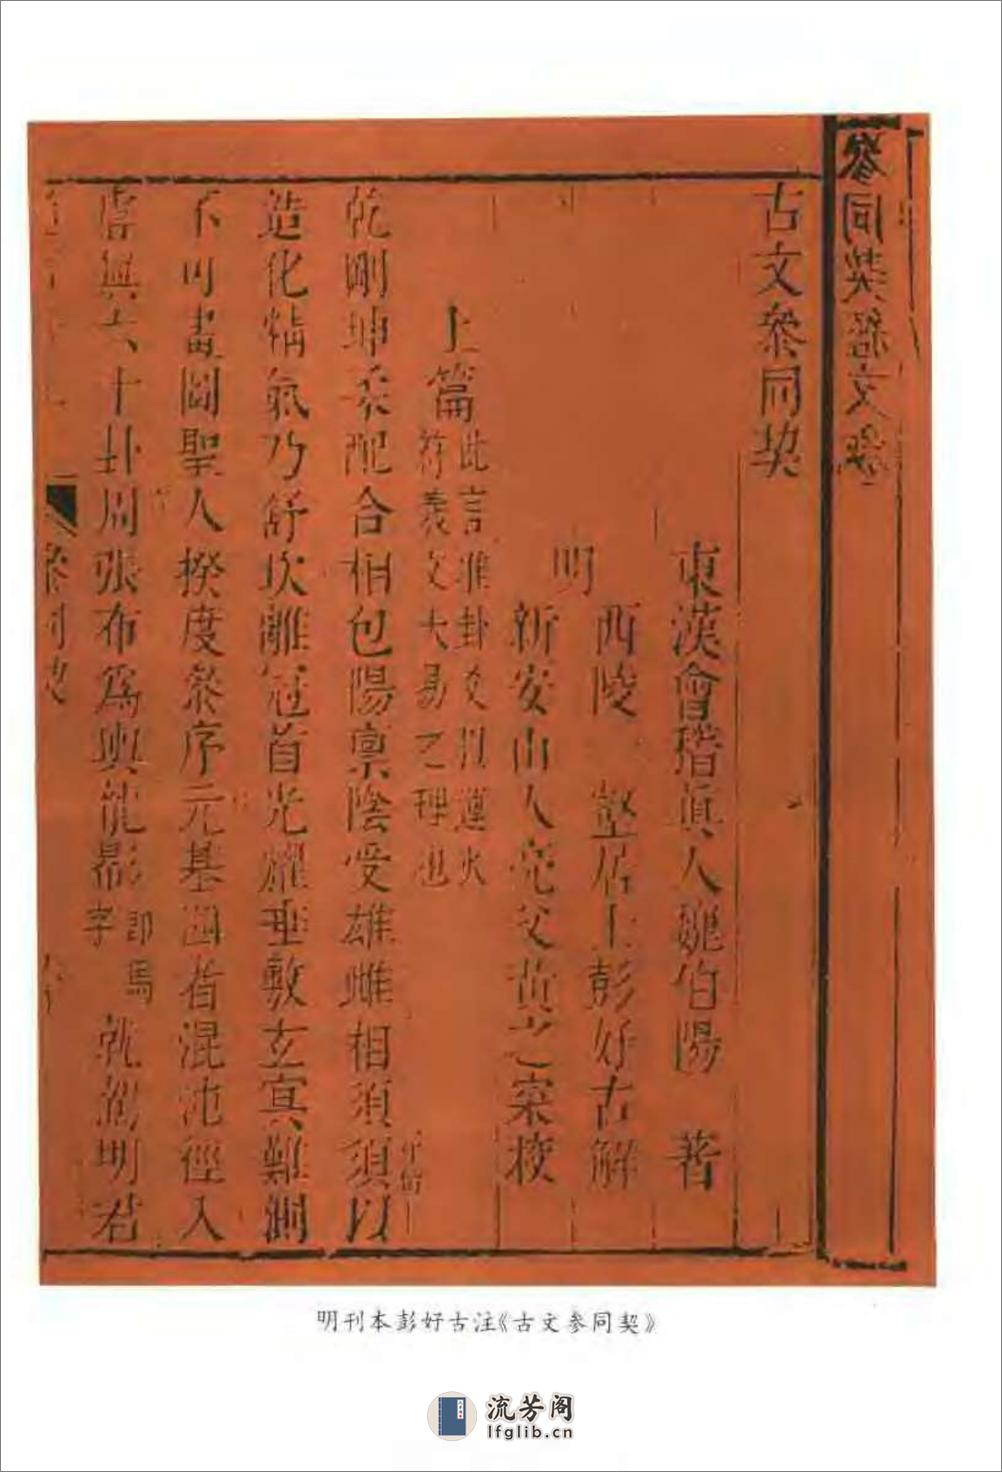 古文叅同契
東漢會稽眞人魏伯陽 著
西陵 壑居士彭好古解
明
新安山人亮父黃之寀校
上篇
此言準卦爻以運火
符羲文大易之理也
乾剛坤柔配合相包陽禀陰受雄雌相須須以
造化精氣乃舒坎離冠首光耀垂敷玄冥難測
不可畫圖聖人揆度叅序元基四者混沌徑入
虛無六十卦周張布爲輿龍馬
即馬
字
就駕明君
明刊本彭好古注《古文参同契》
流芳阁
lfglib.cn